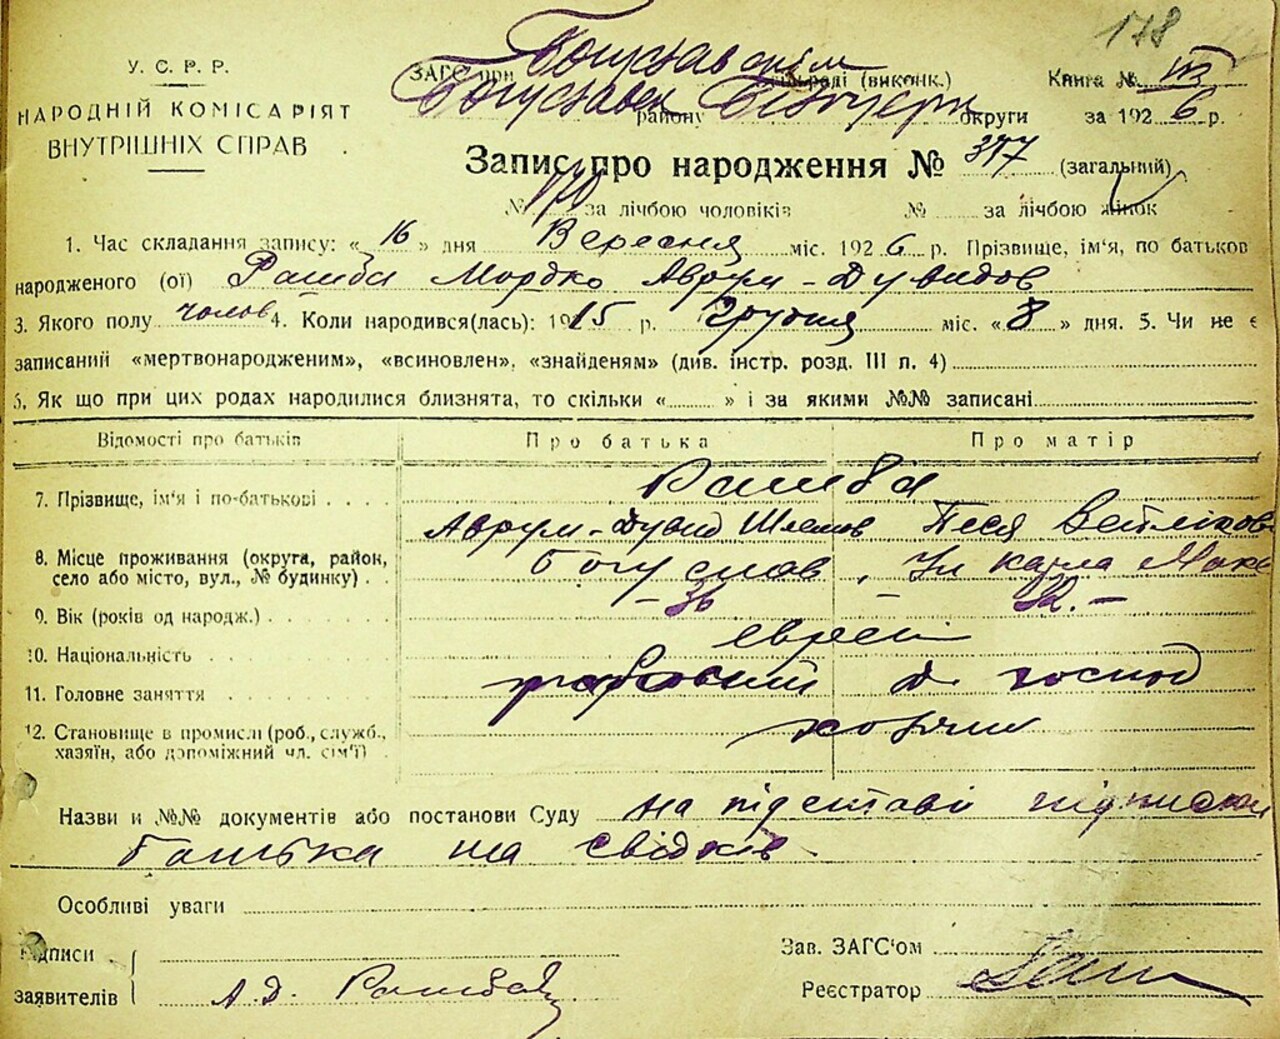 178
У. С. Р. Р.
НАРОДНІЙ КОМІСАРІЯТ
ВНУТРІШНІХ СПРАВ
ЗАГС при Богуславскім раді (виконк.) Книга № III
Богуславск району Білоцерк округи за 1926 р.
Запис про народження № 347 (загальний)
№ 170 за лічбою чоловіків № за лічбою жінок
1. Час складання запису: « 16 » дня Вересня міс. 1926 р. Прізвище, ім'я, по батьков
народженого (ої) Рашба Мордко Аврум-Дувидов
3. Якого полу чолов 4. Коли народився(лась): 1915 р. Грудня міс. « 8 » дня. 5. Чи не є
записаний «мертвонародженим», «всиновлен», «знайденям» (див. інстр. розд. III п. 4)
6. Як що при цих родах народилися близнята, то скільки « » і за якими №№ записані
Відомості про батьків Про батька Про матір
7. Прізвище, ім'я і по-батькові Рашба
Аврум-Дувид Шлемов Песя Вейліков
8. Місце проживання (округа, район, село або місто, вул., № будинку) Богуслав, Ул Карла Макс
9. Вік (років од народж.) - 36 - 32. -
10. Національність евреи
11. Головне заняття д. господ
12. Становище в промислі (роб., служб., хазяїн, або допоміжний чл. сім'ї)
Назви и №№ документів або постанови Суду на підставі підписки
батька та свідків
Особливі уваги
Підписи
заявителів А. Д. Рашба
Зав. ЗАГС'ом
Реєстратор